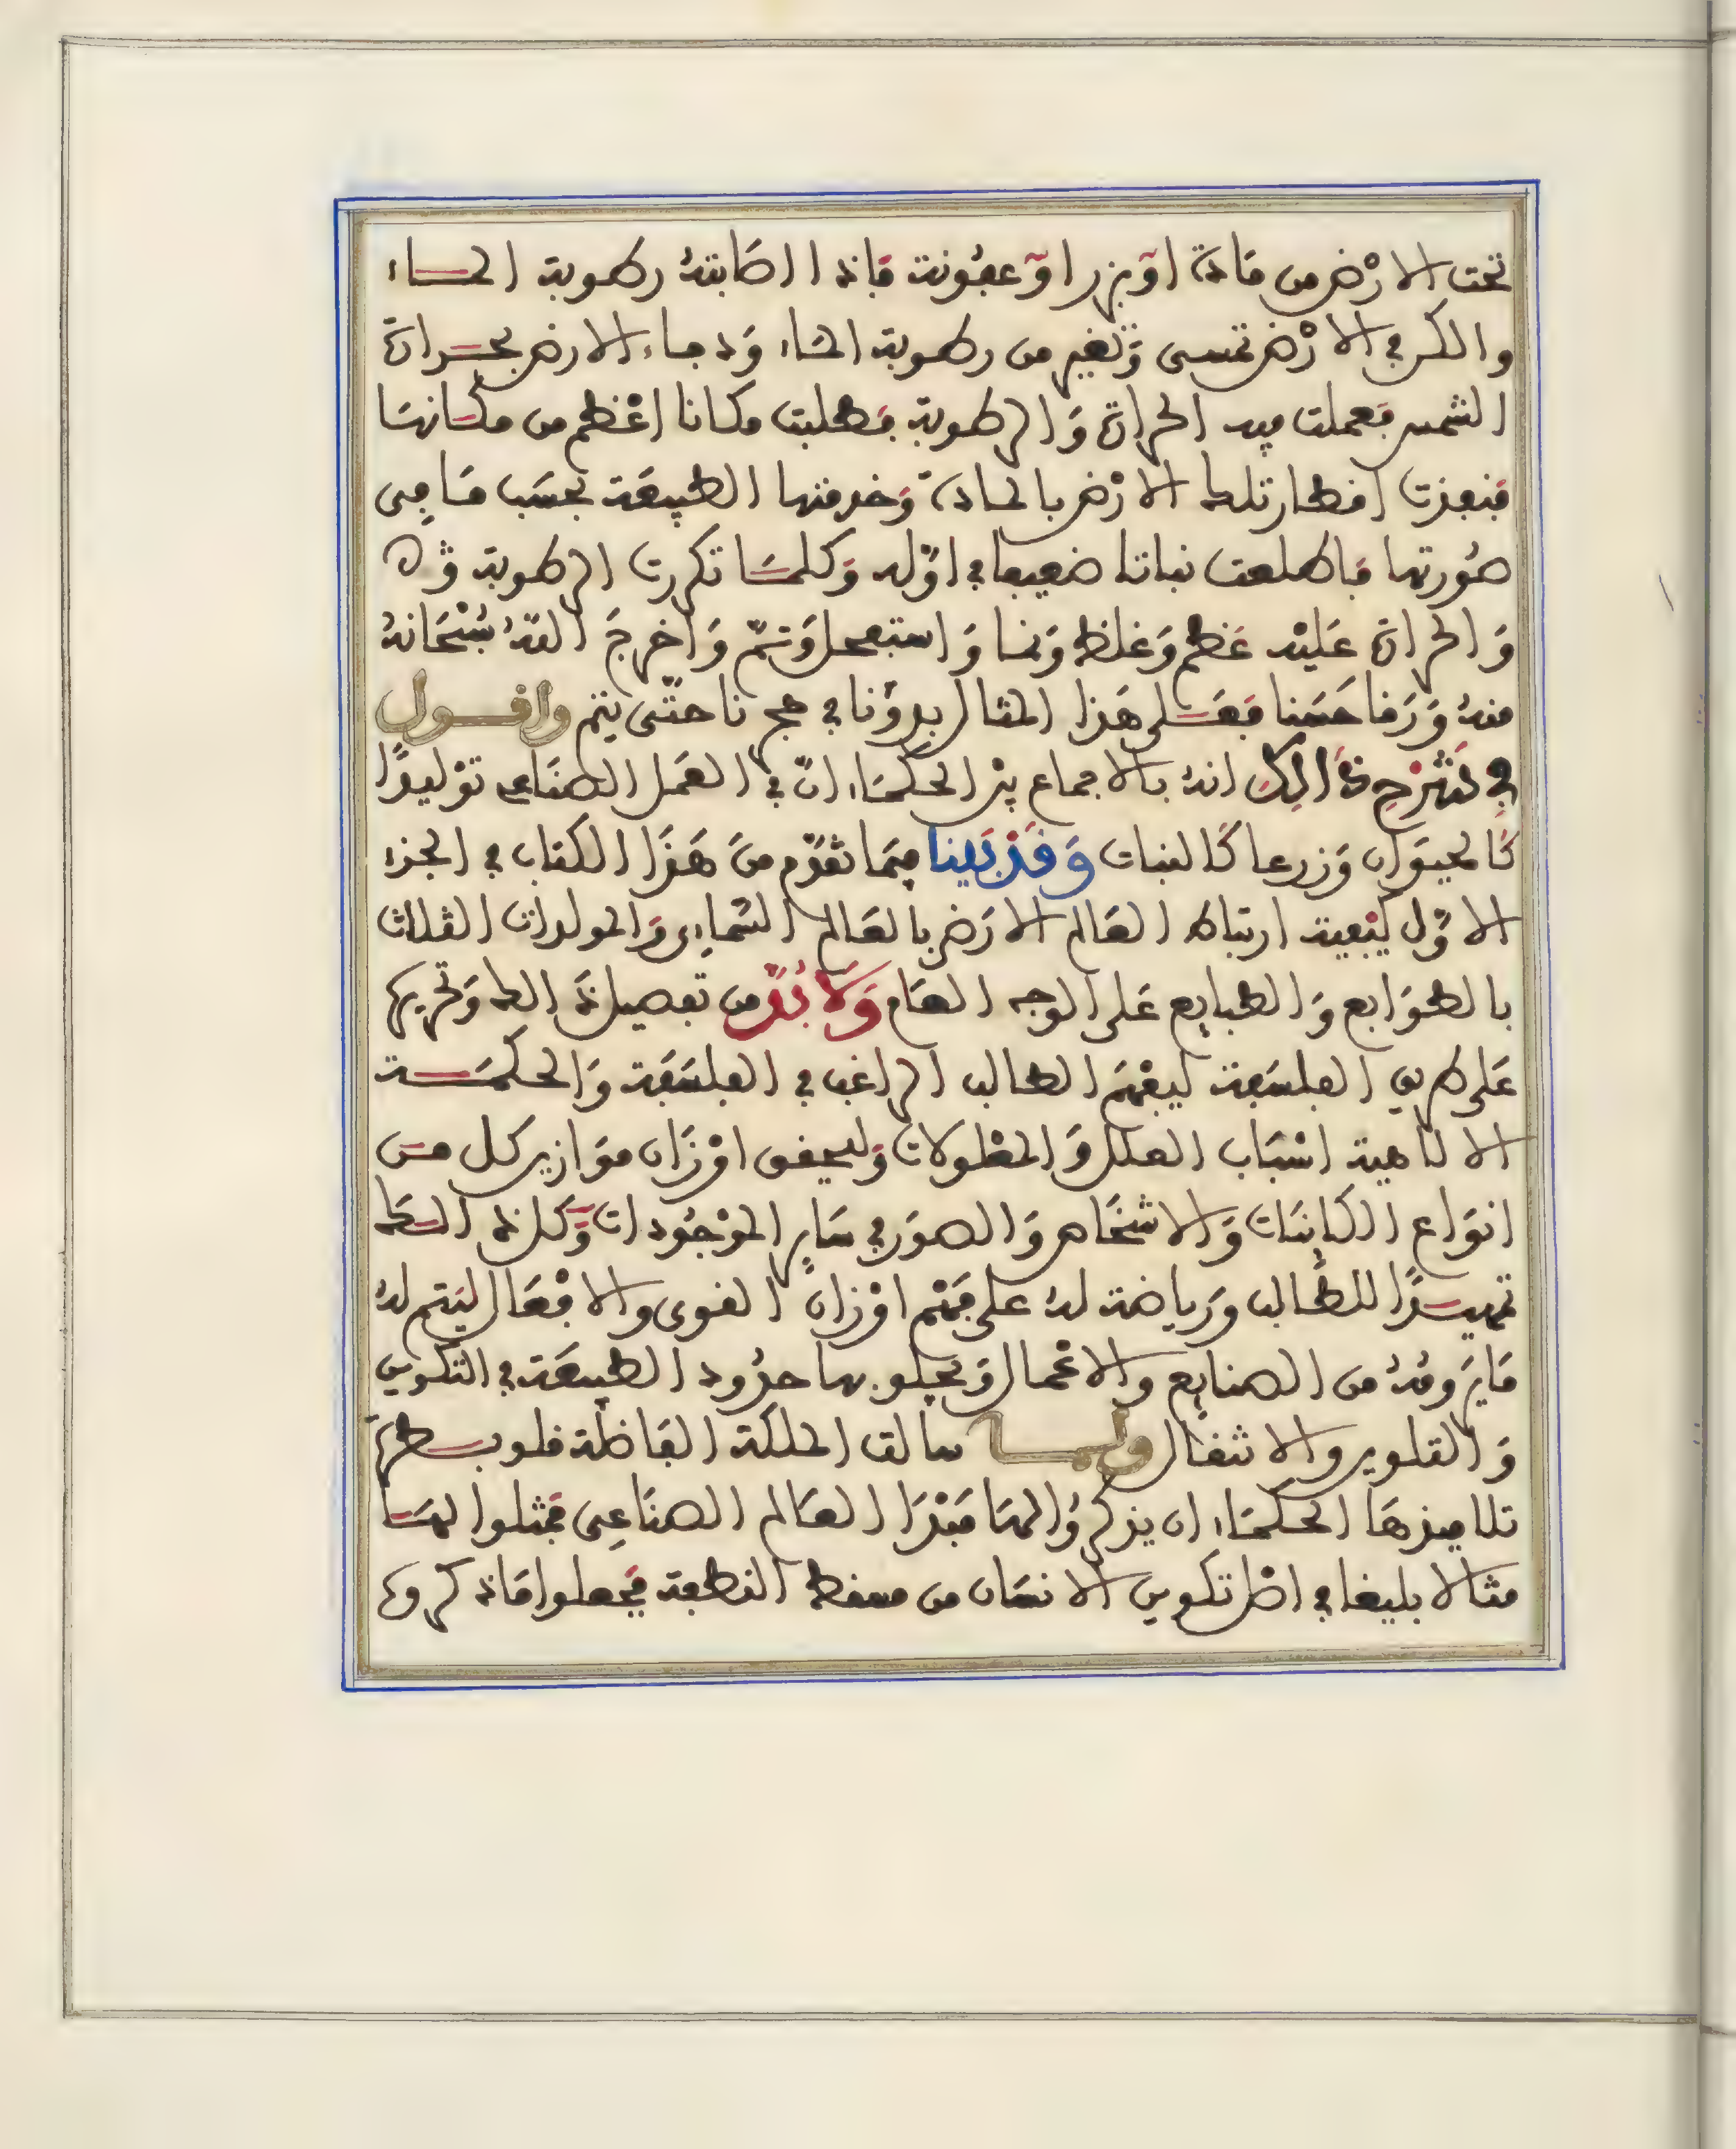 تحت الارْض من مَادة اوْ بزر اوْ عفُونة فَاذا اصَابتهُ رطوبة المــاء
والكن في الارْض تحمى وَتغير من رطوبة المَاء وَدفاء الارض بحــرارة
الشمس فعملت فيه الحرارة وَالرطوبة فطلبت مكانا اعْظم من مكَانهَا
فنفذت اقطار تلك الارْض بالمادة وَخدمتها الطبيعَة بحسَب مَا فِى
صُورتها فَاطلعت نباتا ضعيفا في اوّله وَكلمَا تكررت الرطوبة
وَالحرارة عَليْه عَظم وَغلظ وَنما وَاستفحل وَتمّ وَاخرجَ اللهُ سُبْحَانهُ
منهُ وَرَقا حَسَنا فعَــلى هَذا المثال بدؤنا في حجرنا حتّى يتم واقــول
في شَرْحِ ذَالِكَ انهُ بالاجماع بيْن الحكمَاء انّ في العَمل الصنَاعى توْليدًا
كَالحيوَان وَزرعا كَالنبات وَقَدْ بَينا فيمَا تقدّم منَ هَذَا الكتاب في الجزء
الاوّل كيْفية ارتباط العَالم الارَضى بالعَالم السّماوى وَالمولدات الثلاث
بالطوَابع وَالطبايع عَلى الوجه العَام وَلا بُدّ من تفصيل ذَالك وَتحريرها
عَلى طريق الفلسَفة ليفهَم الطالب الراغب في الفلسَفة وَالحكمَــة
الالاهية اسْبَاب العلل وَالمعْلولات وَليحقق اوْزَان موَازين كل مــن
انوَاع الكاينَات وَالاشخَاص وَالصوَر في سَاير الموْجُودات وَكل ذالــك
تمهيــدًا للطالب وَرياضة لهُ على فهْم اوْزان القوى والافْعَال ليَتم لهُ
مَا يَرومُهُ من الصنايع والاعْمال وَ بها حدُود الطبيعَة في التكوين
وَالتلوين والاثفَال ولمــا سالت الملكَة الفَاضلة قلوبــطرة
تلاميذهَا الحكمَاء ان يذكرُوا لهَا مَبْدَا العَالم الصنَاعِى فمثلوا لهــا
مثالا بليغا في اصْل تكوين الانسَان من مسقط النطفة فجعلوا مَا ذكروه